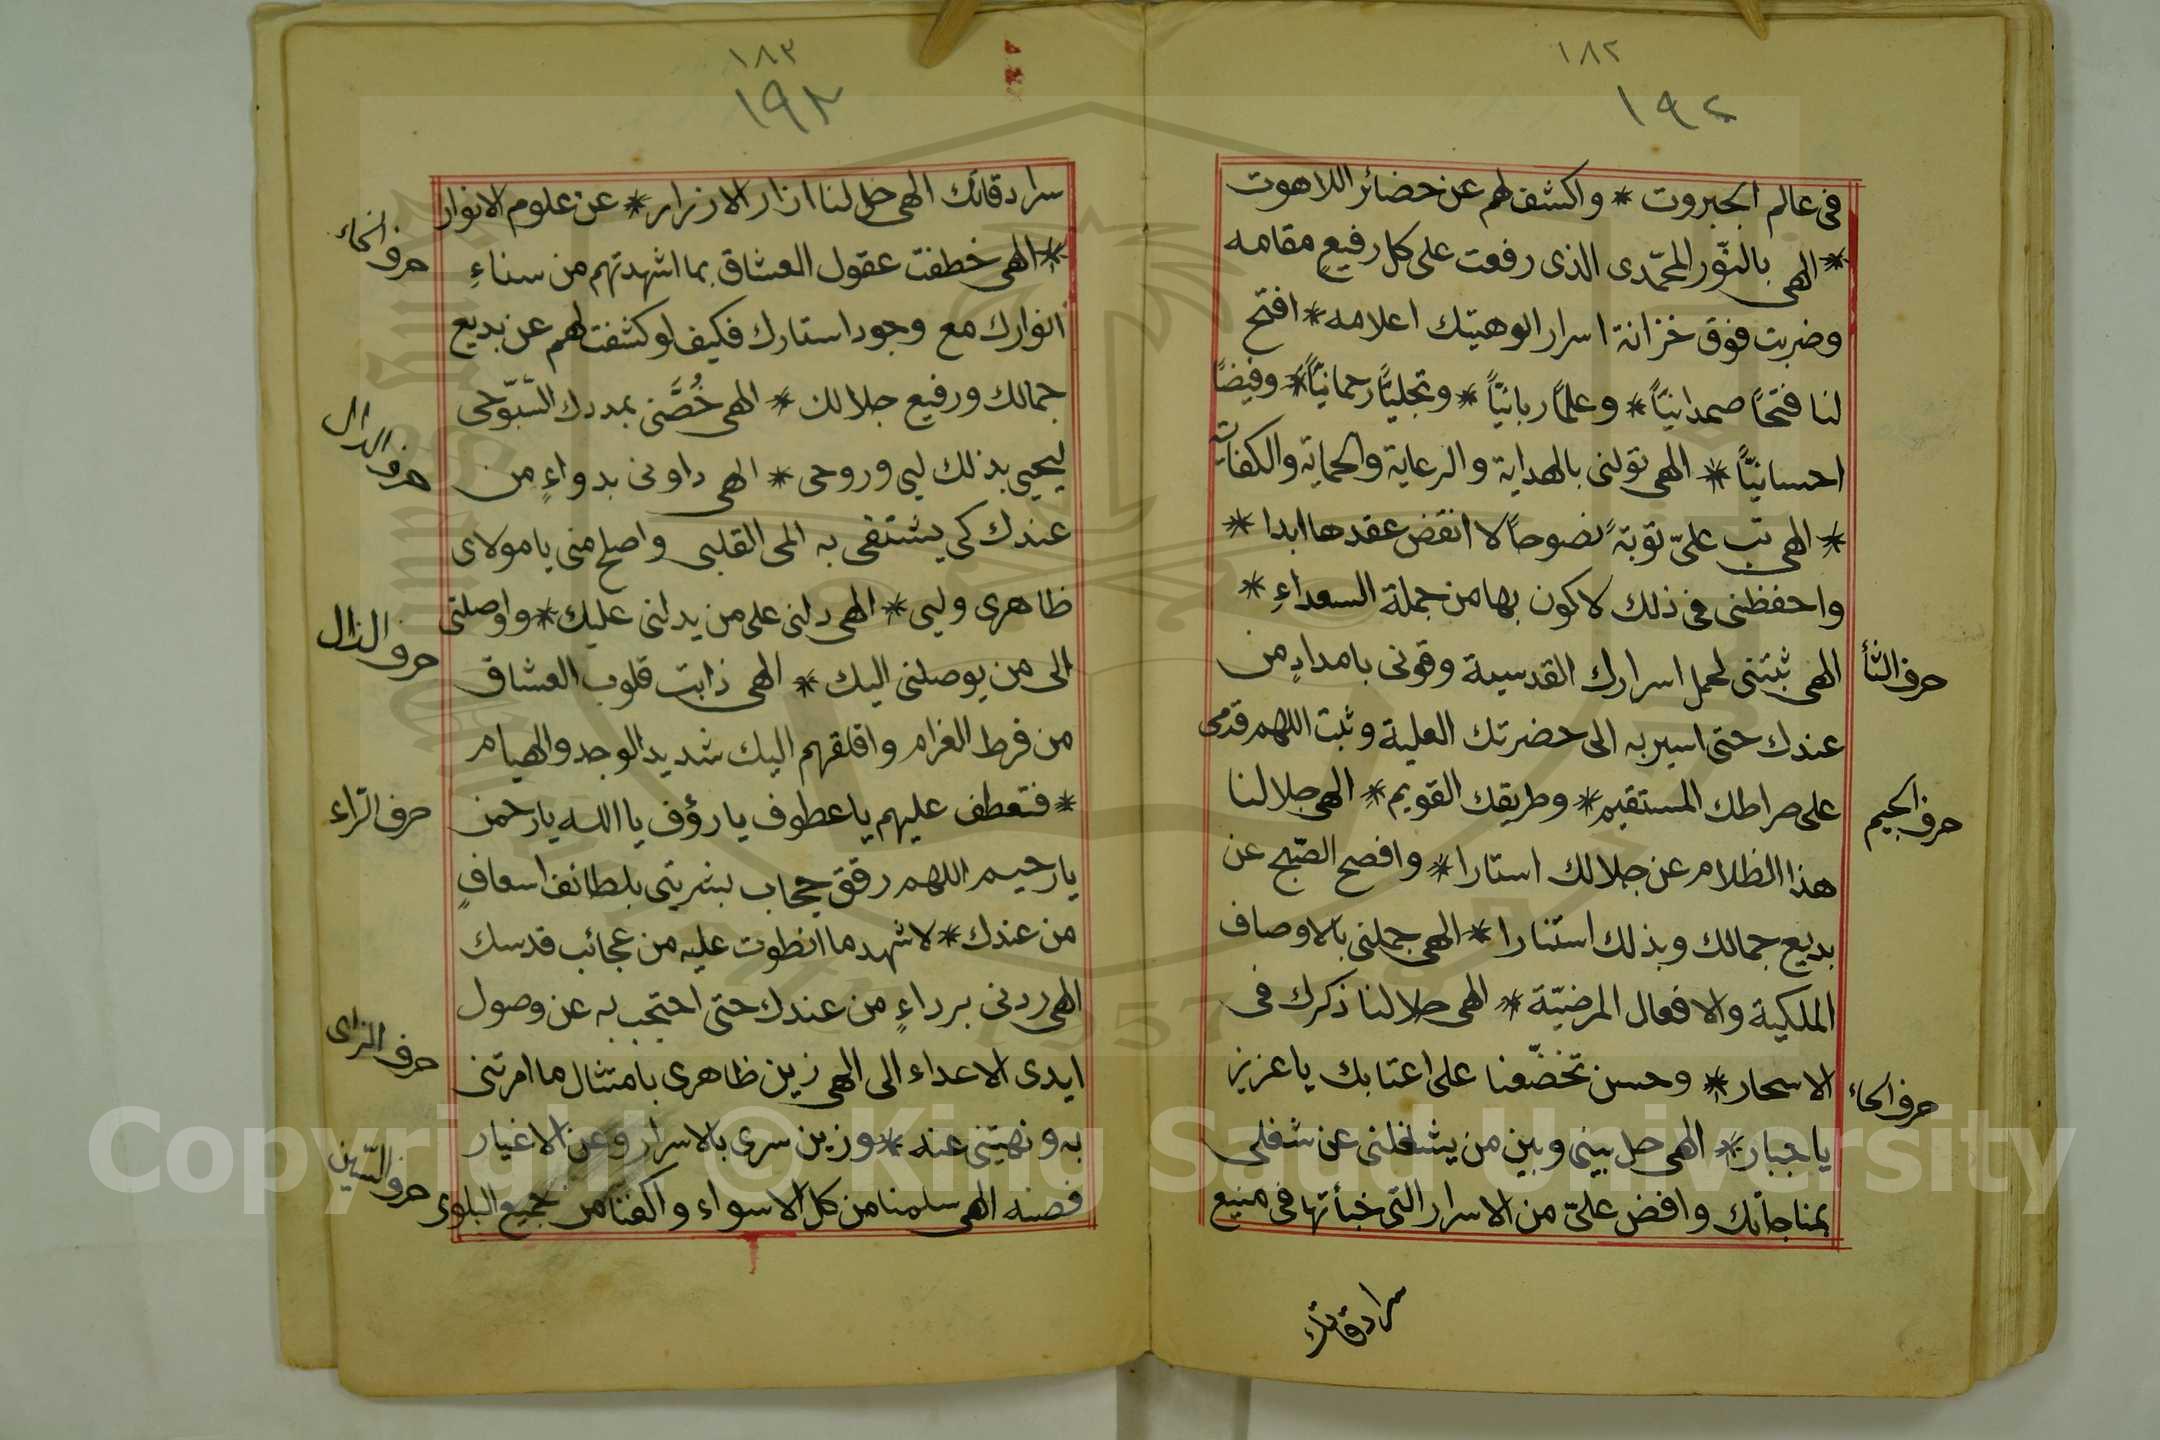 ١٨٢
١٩٢
فى عالم الجبروت * واكشف لهم عن حضائر اللاهوت
* الهى بالنّور المحمّدى الذى رفعت على كل رفيع مقامه
وضربت فوق خزانة اسرار الوهيتك اعلامه * افتح
لنا فتحًا صمدانيًّا * وعلمًا ربانيًّا * وتجليًّا رحمانيًّا * وفيضًا
احسانيًّا * الهى تولنى بالهداية والرعاية والحماية والكفاية
* الهى تب علىّ توبةً نصوحاً لا انقض عقدها ابدا *
واحفظنى فى ذلك لاكون بها من جملة السعداءِ *
الهى ثبتنى لحمل اسرارك القدسية وقونى بامدادٍ من
عندك حتى اسير به الى حضرتك العلية وثبت اللهم قدمى
على صراطك المستقيم * وطريقك القويم * الهى جلا لنا
هذا الظلام عن جلالك استارا * وافصح الصّبح عن
بديع جمالك وبذلك استنارا * الهى جملنى بالاوصاف
الملكية والافعال المرضيّة * الهى حلا لنا ذكرك فى
الاسحار * وحسن تخضّعنا على اعتابك يا عزيز
يا جبار * الهى حل بينى وبين من يشغلنى عن شغلى
بمناجاتك وافض علىّ من الاسرار التى خبأتها فى منيع
حرف الثأ
حرف الجيم
حرف الحاء
سرادقاتك
١٨٣
١٩٣
سرادقاتك الهى خل لنا ازار الازرار * عن علوم الانوار
* الهى خطفت عقول العشاق بما اشهدتهم من سناءِ
انوارك مع وجود استارك فكيف لو كشفت لهم عن بديع
جمالك ورفيع جلالك * الهى خُصَّنى بمددك السّبّوحى
ليحيى بذلك لبى وروحى * الهى داونى بدواءٍ من
عندك كى يشتفى به المى القلبى واصلح منى يا مولاى
ظاهرى ولبى * الهى دلنى على من يدلنى عليك * واوصلنى
الى من يوصلنى اليك * الهى ذابت قلوب العشاق
من فرط الغرام واقلقهم اليك شديد الوجد والهيام
* فتعطف عليهم يا عطوف يا رؤف يا الله يا رحمن
يا رحيم اللهم رقق حجاب بشريتى بلطائف اسعافٍ
من عندك * لاشهد ما انطوت عليه من عجائب قدسك
الهى ردنى برداءٍ من عندك حتى احتجب به عن وصول
ايدى الاعداء الى الهى زين ظاهرى بامتثال ما امرتنى
به ونهيتنى عنه * وزين سرى بالاسرار وعن الاغيار
فصنه الهى سلمنا من كل الاسواء واكفنا من جميع البلوى
حرف الخاء
حرف الدال
حرف الذال
حرف الرّاء
حرف الزاى
حرف السّين
Copyright © King Saud University
1957